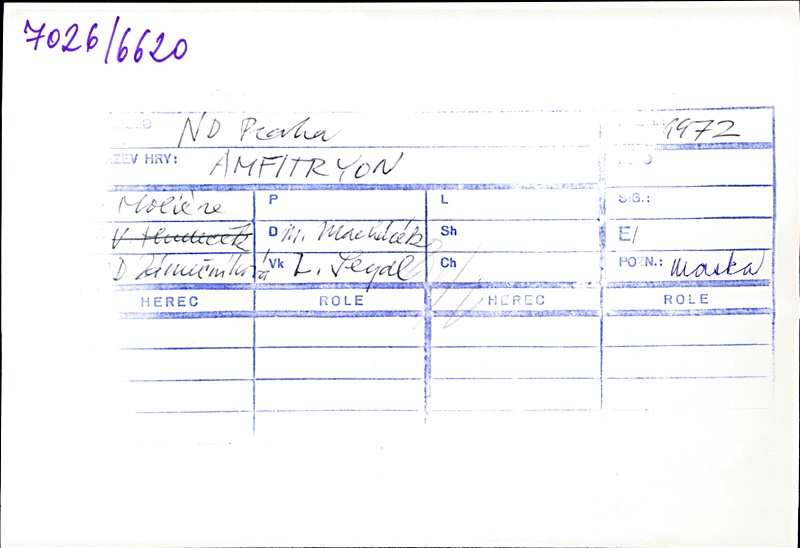 7026/6620
ND Praha 1972
ZEV HRY: AMFITRYON
Moliére P L S.G.:
V Hudeček D M. Macháček Sh E/
D Zámečníková Vk L. Segal Ch POZN.: maska
HEREC ROLE HEREC ROLE